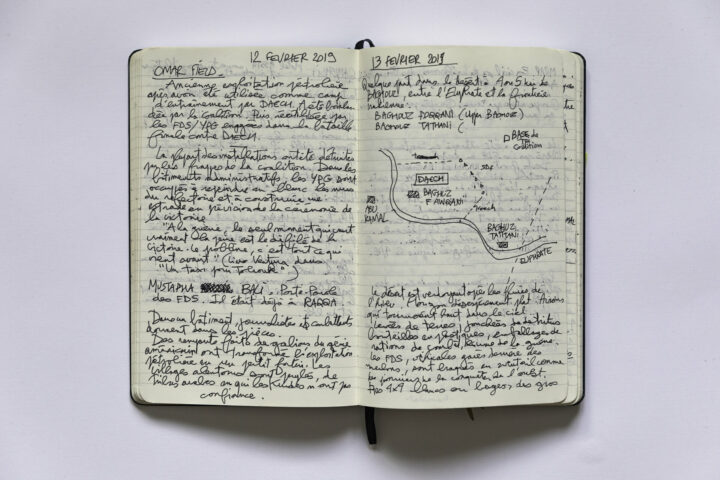 12 FEVRIER 2019
OMAR FIELD
- Ancienne exploitation pétrolière
après avoir été utilisée comme camp
d'entraînement par DAECH. A été bombar-
dée par la Coalition. Puis réutilisée par
les FDS/YPG engagés dans la bataille
finale contre DAECH.
La plupart des installations ont été détruites
par les frappes de la coalition. Dans les
bâtiments administratifs, les YPG sont
occupés à repeindre en blanc les murs
du réfectoire et à construire une
estrade en prévision de la cérémonie de
la victoire
"A la guerre, le seul moment qui vaut
vraiment la peine est le défilé de la
victoire. Le problème, c'est tout ce qui
vient avant" (Lino Ventura, dans
"Un taxi pour Tobrouk")
MUSTAPHA BALI. Porte-Parole
des FDS. Il était déjà à RAQQA.
Dans un bâtiment, journalistes et combattants
dorment dans les pièces.
Des remparts faits de gabions de génie
américain ont transformé l'exploitation
pétrolière en un petit fortin. Les
villages alentours sont peuplés de
tribus arabes en qui les Kurdes n'ont pas
confiance.
13 FEVRIER 2019
Quelque part dans le désert à 4 ou 5 km de
BAGHOUZ entre l'Euphrate et la frontière
irakienne.
BAGHOUZ FOQQANI (Upper Baghouz)
BAGHOUZ TATHANI (
BASE de
la
Coalition
SDF
DAECH
BAGHUZ
FAWQANI
ABU
KAMAL
BAGHUZ
TATHANI
EUPHRATE
Le désert est verdoyant après les pluies de
l'hiver. Horizon plat. Avions
qui tournoient haut dans le ciel
Levées de terres, jonchées de détritus
bouteilles en plastiques, emballages de
rations de combat,
les FDS, véhicules garés derrière des
merlons, sont braqués en comme
les pionniers de la conquête de l'ouest.
Pick up 4x4 blancs ou beiges, des gros